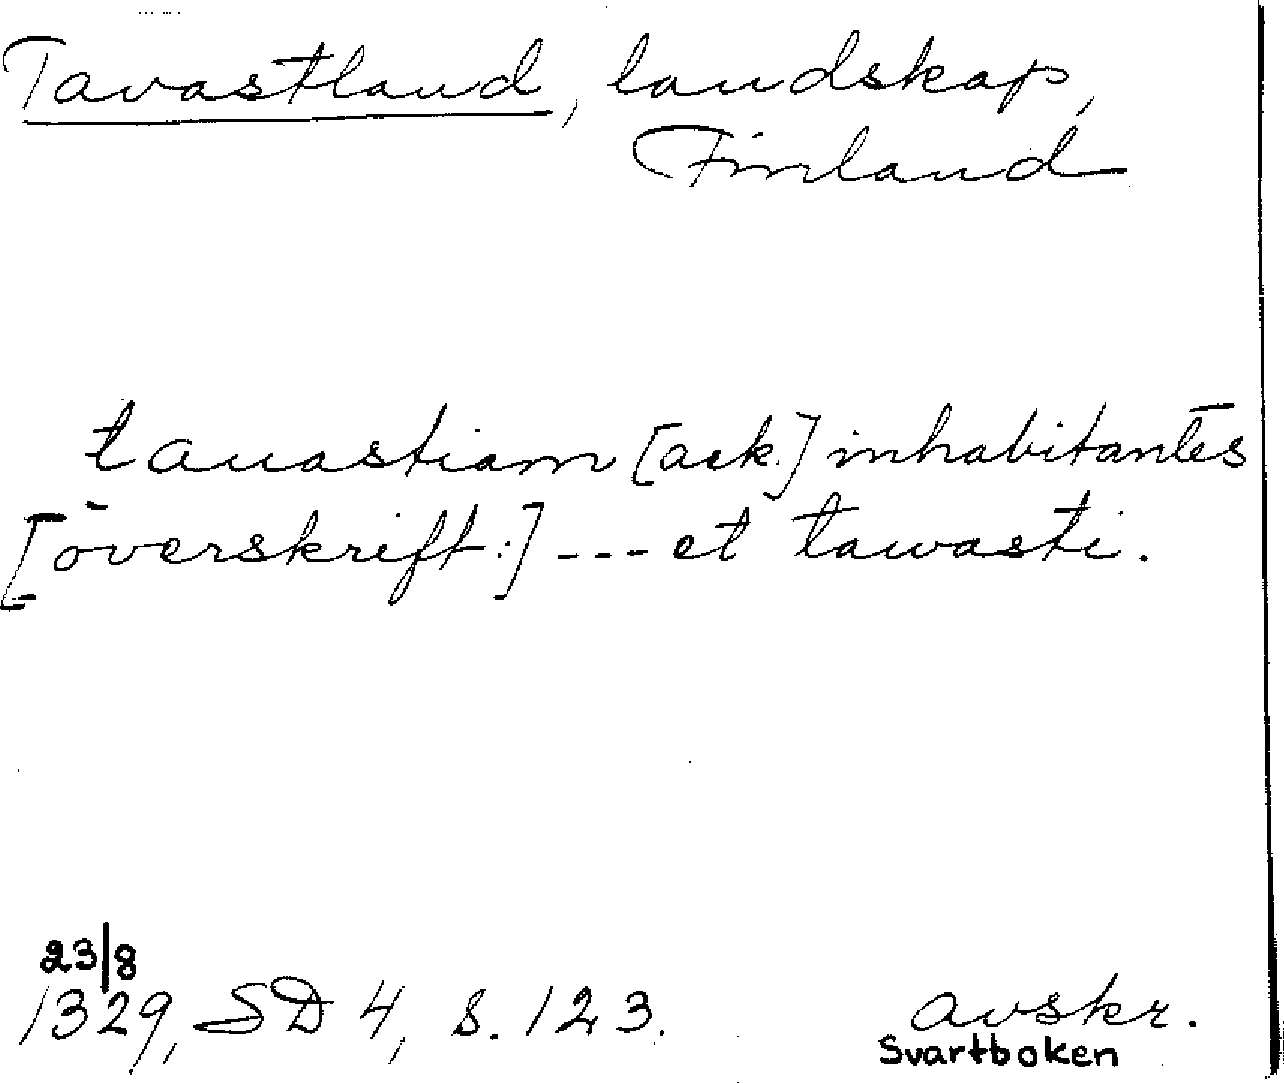 Tavastland, landskap,
Finland
tauastiam [ack.] inhabitantes
[överskift:] --- et tawasti.
23/8
1329, SD 4, s. 123.
avskr.
Svartboken